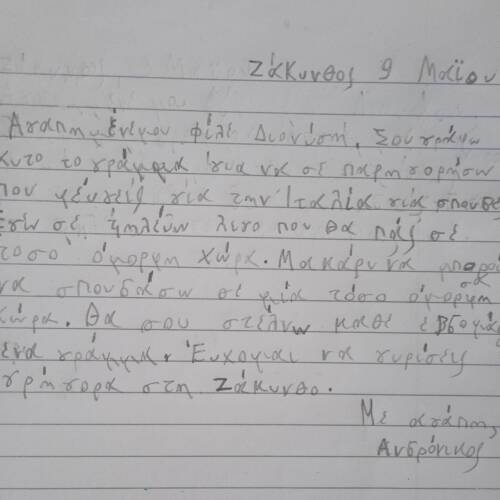 Ζάκυνθος 9 Μαϊου
Αγαπημένε μου φίλε Διονύση, Σου γράφω
αυτο το γράμμα για να σε παρηγορήσω
που φεύγεις για την Ιταλία για σπουδές
Εγώ σε ζηλεύω λιγο που θα πάς σε
τοσο όμορφη χώρα. Μακάρι να μπορού
σα
να σπουδάσω σε μια τόσο όμορφη
χώρα. Θα σου στέλνω καθε εβδομάδα
ένα γράμμα. Ευχομαι να γυρίσεις
γρήγορα στη Ζάκυνθο.
Με αγάπη
Ανδρόνικος